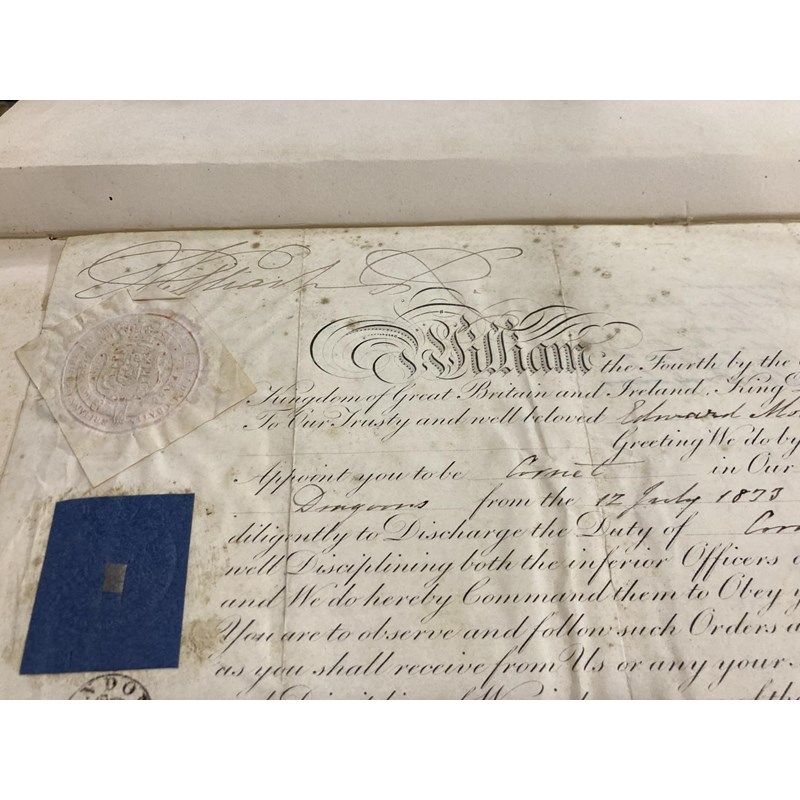 William R
William the Fourth by the
Kingdom of Great Britain and Ireland, King
To Our Trusty and well beloved Edward
Greeting We do by
Appoint you to be Cornet in Our
Dragoons from the 12 July 1833
diligently to Discharge the Duty of
well Disciplining both the inferior Officers
and We do hereby Command them to Obey
You are to observe and follow such Orders
as you shall receive from Us or any your